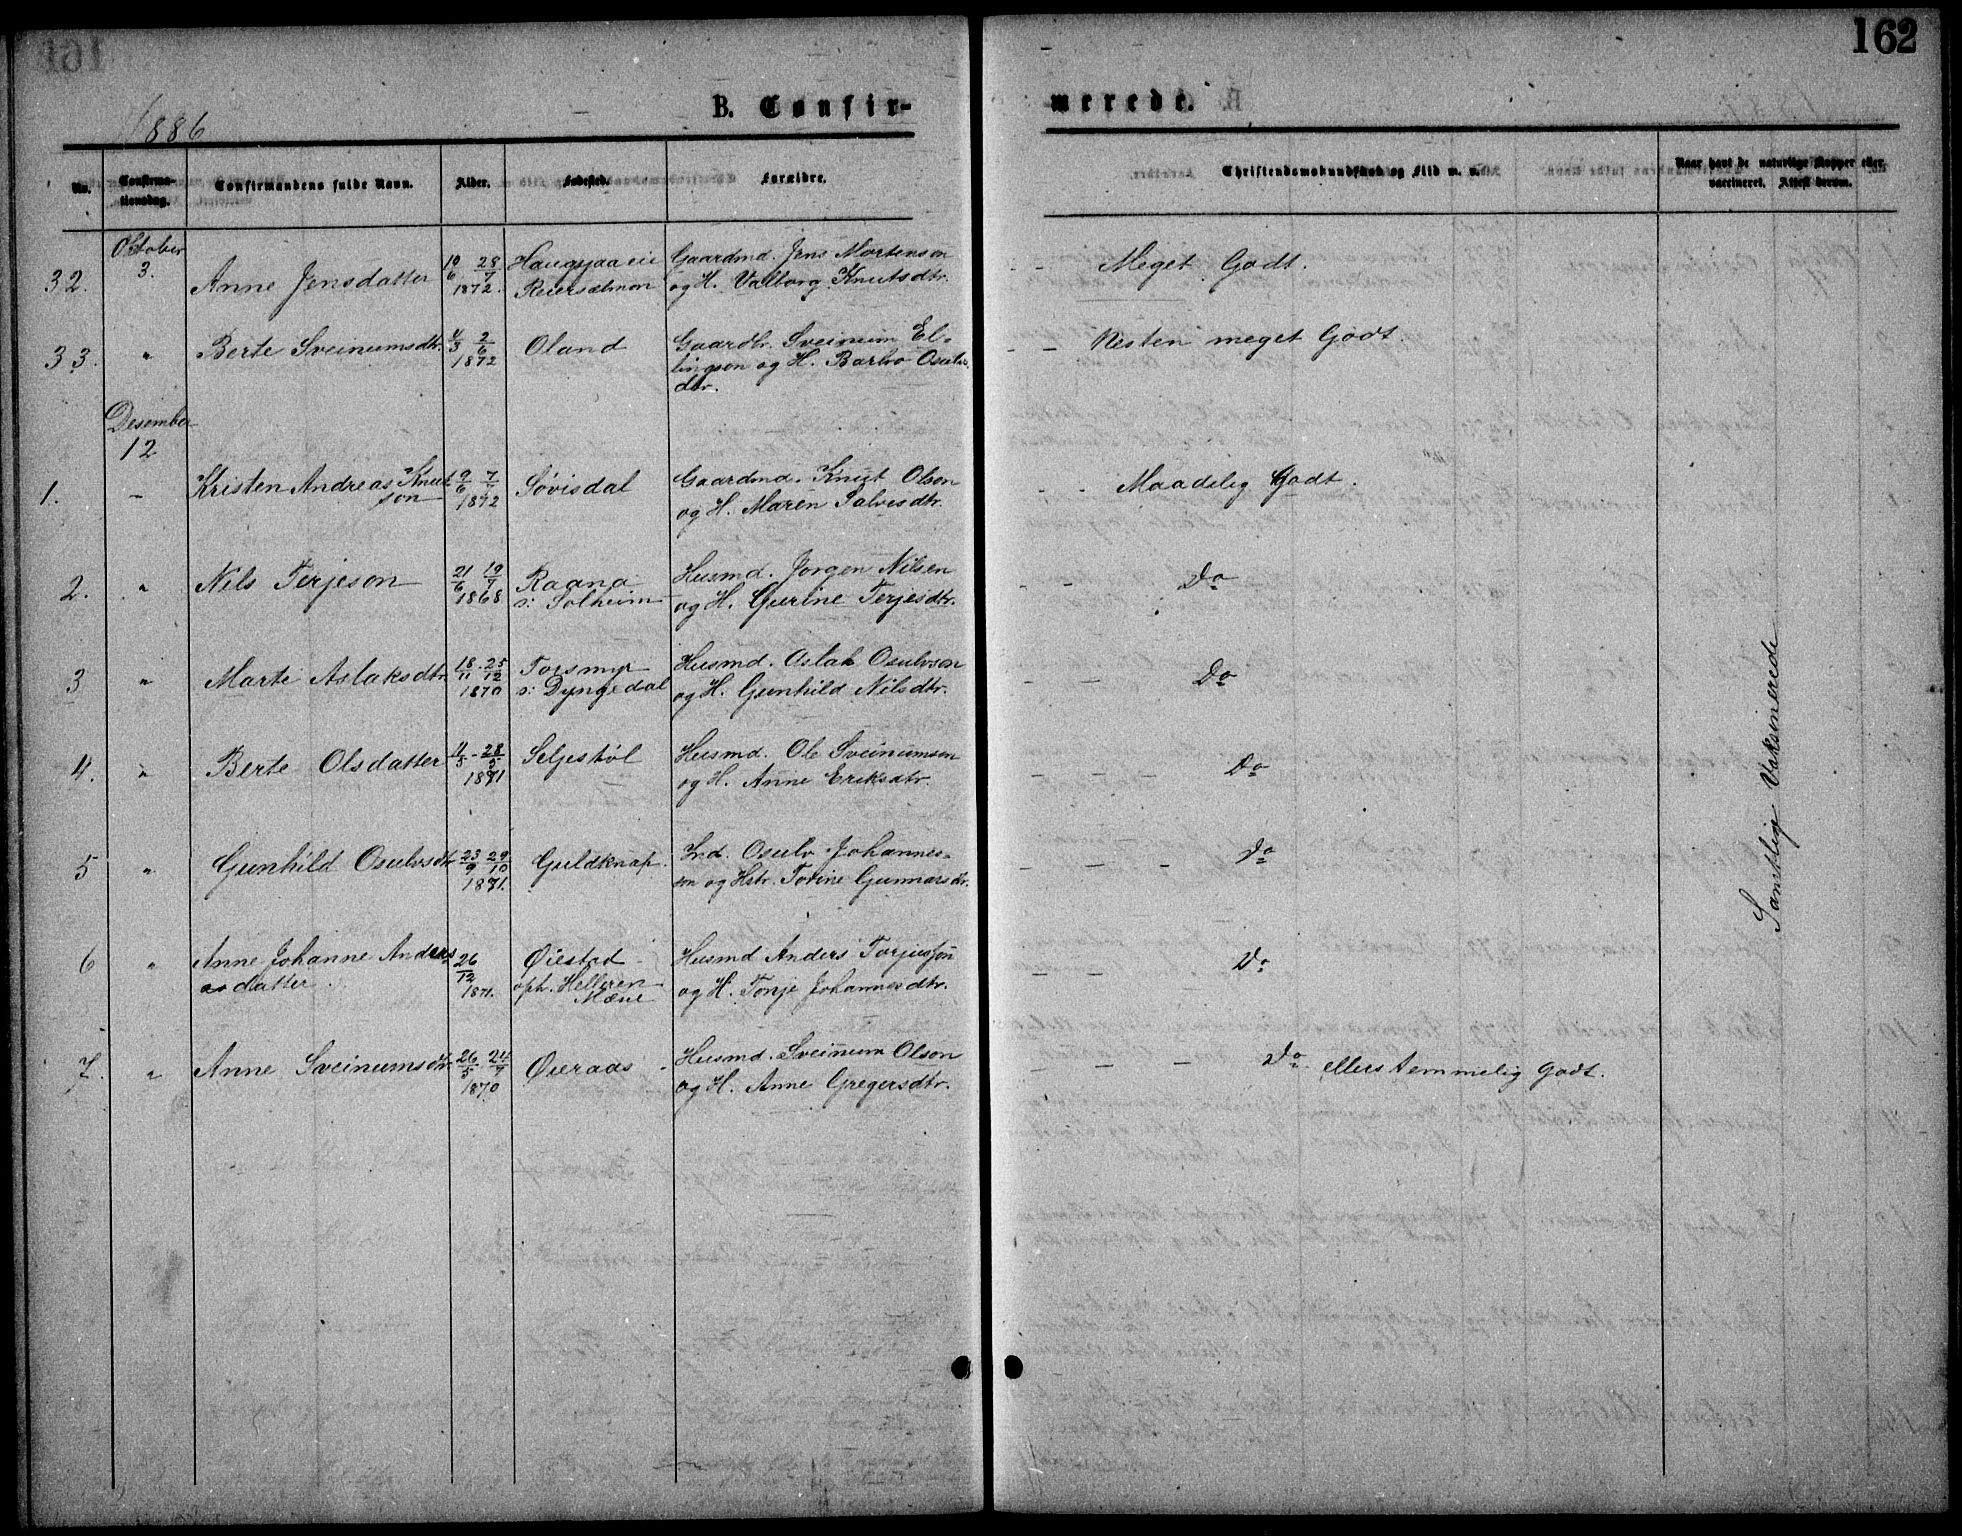 162
1886
B. Confirmerede.
No.
Confirmationsdag.
Confirmandens fulde Navn.
Alder.
Fødested.
Forældre.
Christendomskundskab og Flid m. v.
Naar havt de naturlige Kopper eller
vaccineret. Attest derom.
Oktober
32. 3. Anne Jensdatter 19/6 28/7 1872. Haugsjaaeie Gaardmd. Jens Mortenson
og H. Valborg Knutsdtr. - - Meget Godt.
33. " Berte Sveinumsdtr. 4/3 2/6 1872 Oland Gaardbr. Sveinum El-
lingson og H. Barbro Osulvs
dtr. - - Nesten meget Godt.
Desember
12
1. - Kristen Andreas Knut
son 19/6 7/7 1872 Søvisdal Gaardmd. Knut Olson
og H. Maren Salvesdtr. - - Maadelig Godt.
2. " Nils Terjeson 21/6 19/7 1868 Raana
s: Solheim Husmd. Jorgen Nilsen
og H. Gurine Terjesdtr. - - Do
3 " Marte Aslaksdtr. 18/11 - 25/12 1870 Torsmyr
s: Dyngedal Husmd. Oslak Osulvson
og H. Gunhild Nilsdtr. - - Do
4. " Berte Olsdatter 11/5 - 28/5 1871 Seljestøl Husmd. Ole Sveinumson
og H. Anne Eriksdtr. - - - Do
5 " Gunhild Osulvsdtr 23/9 29/10 1871. Guldknap. Ind. Osulv Johannes-
son og Hstr. Torine Gunnarsdtr. - - Do
6 " Anne Johanne Anders
datter. 26/12 1871. Øiestad
oph. Helleren Husmd Anders Torjusson
og H. Tonje Johannesdtr. - - Do
7. " Anne Sveinumsdtr 26/5 24/7 1870 Øieraas Husmd. Sveinum Olson
og H. Anne Gregersdtr. - - - Do ellers temmelig Godt.
Samtlig Vaksinerede